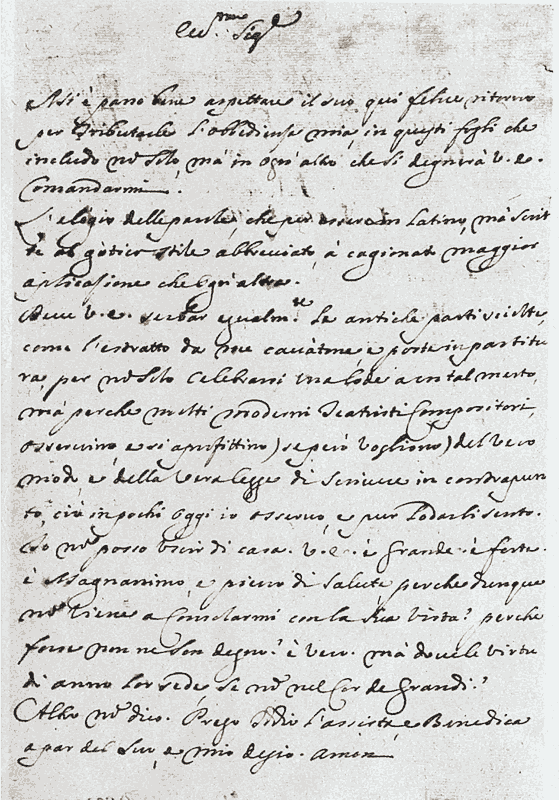 Ecc.mo Sig.re
Mi è parso bene aspettare il suo quì felice ritorno
per tributarle l'obbedienza mia in questi fogli che
includo nõ solo, mà in ogn'altro che si degnerà V. E.
Comandarmi.
L'elogio delle parole che per essere in Latino, mà scrit
te al gotico stile abbreviato, à cagionato maggior
aplicasione che ogn'altra.
Deve V. E. serbar egualm.te le antiche parti sciolte,
come l'estratto da me cavatone, e poste in partitu
ra, per nõ solo celebrarsi una lode a un tal merto,
mà perche molti moderni Teatristi Compositori,
osservino e si aprofittino) se però vogliono) del vero
modo, e della vera legge di scrivere in contrapun
to, ciò in pochi oggi io osservo, e pur Lodarli sento.
Io nõ posso uscir di casa. V. E. è grande è forte
è Magnanimo, e pieno di salute perche dunque
nõ viene a Consolarmi con la sua vista? perche
forse non ne son degno? è vero. mà dove le virtù
di anno Lor sede se nõ nel Cor de Grandi?
Altro nõ dico. Prego Iddio l'assista e Benedica
a par del suo, e mio desio. amen